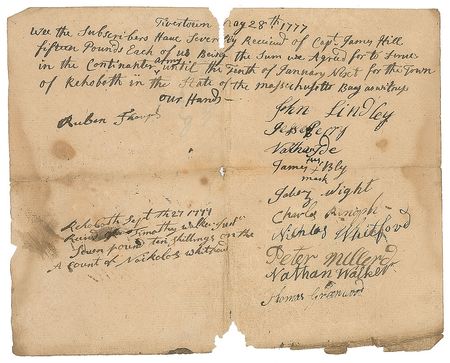 Tivertown May 28th 1777
Wee the Subscribers Have Severly Recived of Capt James Hill
fifteen Pounds Each of us Being the Sum we Agreed for to Serve
in the Continantel army until the Tenth of January Next for the Town
of Rehoboth in the State of the massachusetts Bay as witnes
our Hands
Ruben
John Lindley
Nathan
his
James Bly
mark
Wight
Charles
Nicholas Whitford
Peter Millerd
Nathan Walker
Thomas Grenwood
Rehoboth Sept th 27 1777
Timothy Walker
Seven pound ten shillings on the
A count of Nickolos Whitford